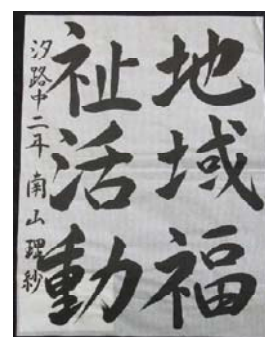 地域福
祉活動
汐路中二年 南山理紗